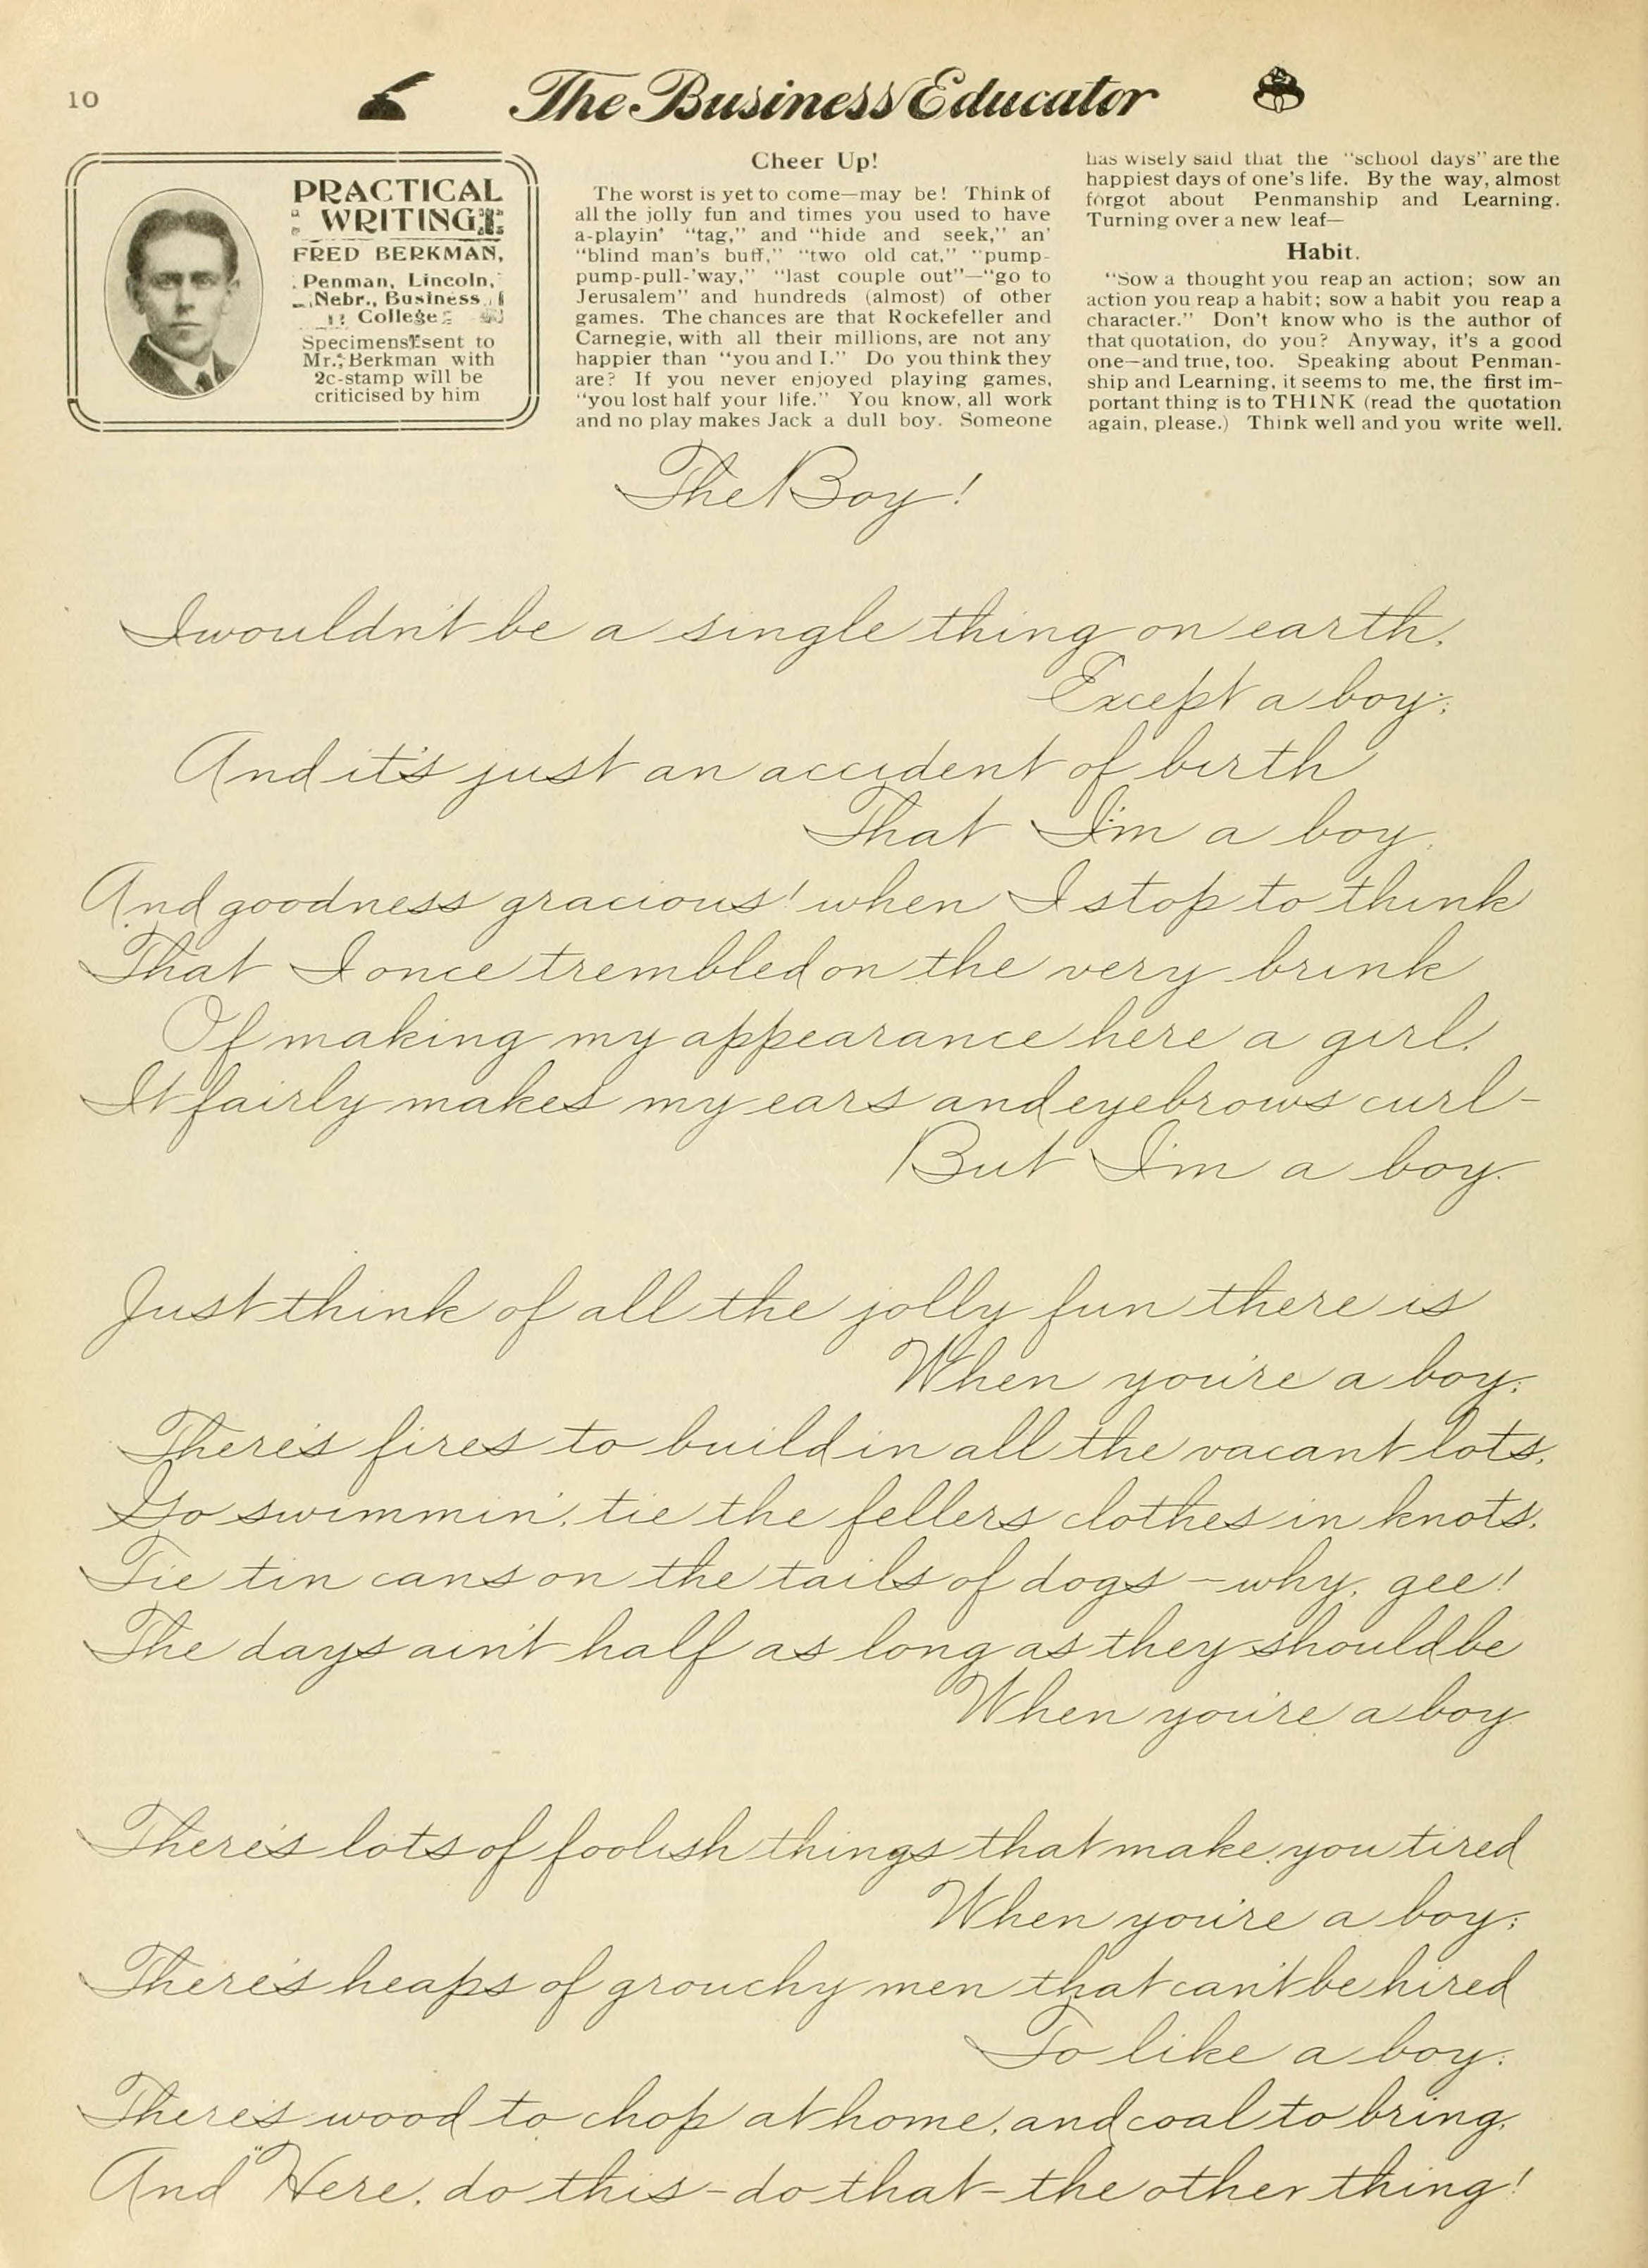 10
The Business Educator
PRACTICAL
WRITING
FRED BERKMAN,
Penman, Lincoln,
Nebr., Business
College
Specimens sent to
Mr. Berkman with
2c-stamp will be
criticised by him
Cheer Up!
The worst is yet to come—may be! Think of
all the jolly fun and times you used to have
a-playin' "tag," and "hide and seek," an'
"blind man's buff," "two old cat," "pump-
pump-pull-'way," "last couple out"—"go to
Jerusalem" and hundreds (almost) of other
games. The chances are that Rockefeller and
Carnegie, with all their millions, are not any
happier than "you and I." Do you think they
are? If you never enjoyed playing games,
"you lost half your life." You know, all work
and no play makes Jack a dull boy. Someone
has wisely said that the "school days" are the
happiest days of one's life. By the way, almost
forgot about Penmanship and Learning.
Turning over a new leaf—
Habit.
"Sow a thought you reap an action; sow an
action you reap a habit; sow a habit you reap a
character." Don't know who is the author of
that quotation, do you? Anyway, it's a good
one—and true, too. Speaking about Penman-
ship and Learning, it seems to me, the first im-
portant thing is to THINK (read the quotation
again, please.) Think well and you write well.
The Boy!
I wouldn't be a single thing on earth,
Except a boy;
And it's just an accident of birth
That I'm a boy.
And goodness gracious! when I stop to think
That I once trembled on the very brink
Of making my appearance here a girl,
It fairly makes my ears and eyebrows curl—
But I'm a boy.
Just think of all the jolly fun there is
When you're a boy;
There's fires to build in all the vacant lots,
Go swimmin', tie the fellers clothes in knots,
Tie tin cans on the tails of dogs—why, gee!
The days ain't half as long as they should be
When you're a boy
There's lots of foolish things that make you tired
When you're a boy;
There's heaps of grouchy men that can't be hired
To like a boy;
There's wood to chop at home, and coal to bring,
And "Here, do this—do that—the other thing!